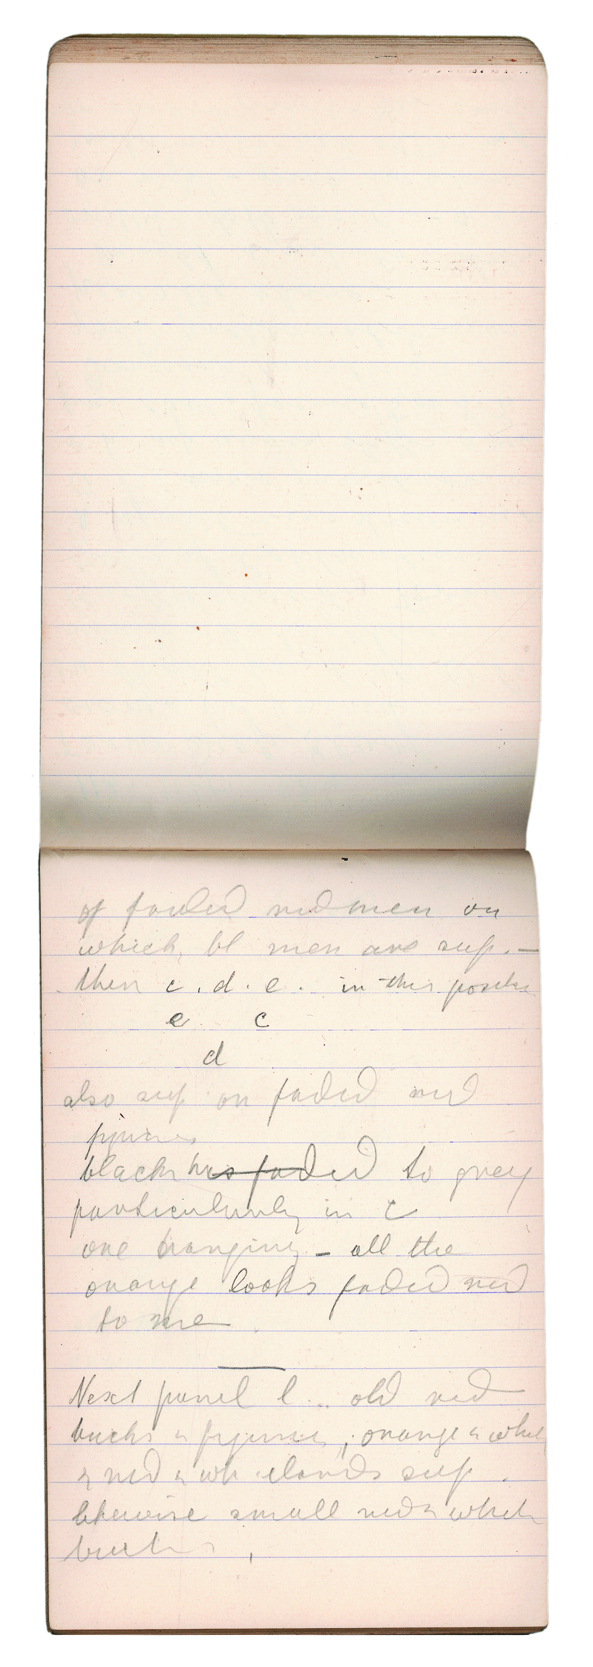 of faded red men on
which bl men are sup. —
then c. d. e. in this position
e c
d
also sup on faded red
figures
blacks has faded to grey
particularly in c
one hanging – all the
orange looks faded red
to me
Next panel l .. old red
bucks & figures, orange & white
& red & wh elands sup.
likewise small red & white
bucks